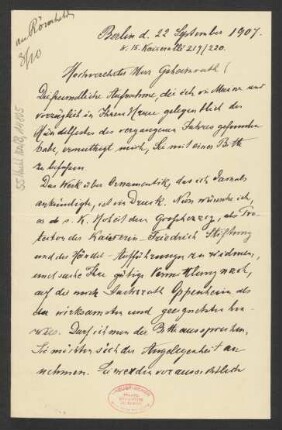 Berlin d. 22 September 1907.
W. 15. Kaiserallee 219/220.
Hochverehrter Herr Geheimrath!
Die freundliche Aufnahme, die ich in Mainz und
vorzüglich in Ihrem Hause gelegentlich des
Händelfestes des vergangenen Jahres gefunden
habe, ermuthigt mich, Sie mit einer Bitte
zu befassen.
Das Werk über Ornamentik, das ich damals
ankündigte, ist im Druck. Nun wünsche ich,
es S. K. Hoheit dem Grossherzog, als Pro-
tektor der Kaiserin Friedrich Stiftung
und der Händel-Aufführungen zu widmen,
und suche Ihre gütige Vermittlung nach,
auf die mich Oppenheim als
die wirksamste und geeignetste hin-
wies. Darf ich nun die Bitte aussprechen,
Sie möchten sich der Angelegenheit an-
nehmen. Sie werden voraussichtlich